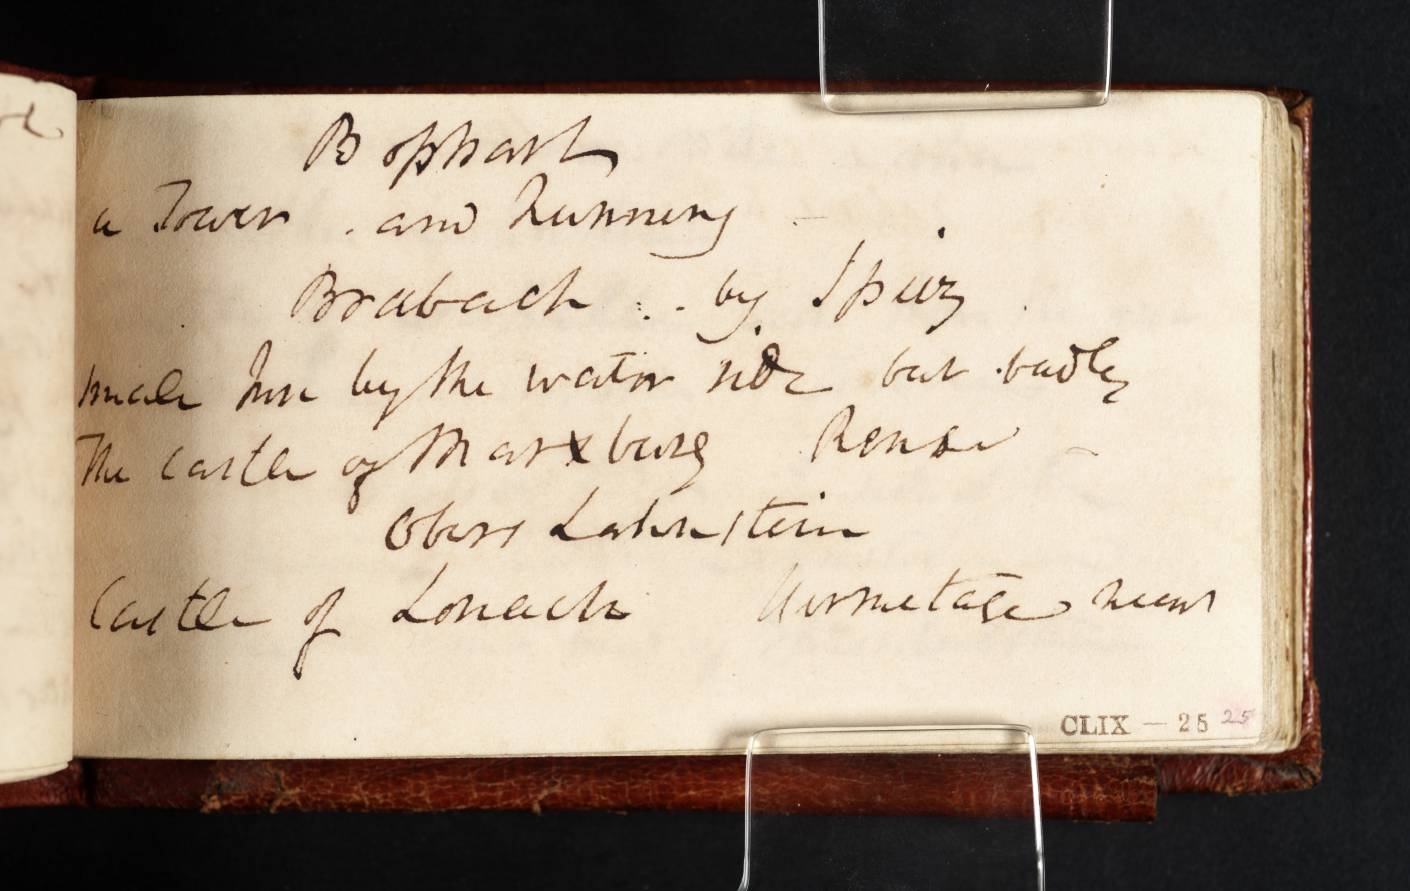 Bophart
a Tower. and Nunnery
Brabach .. by Spiez
small Inn by the water side but badly
The Castle of Marxburg Rense
Ober Lahnstein
Castle of Loneck Hermitage near
CLIX - 25 25